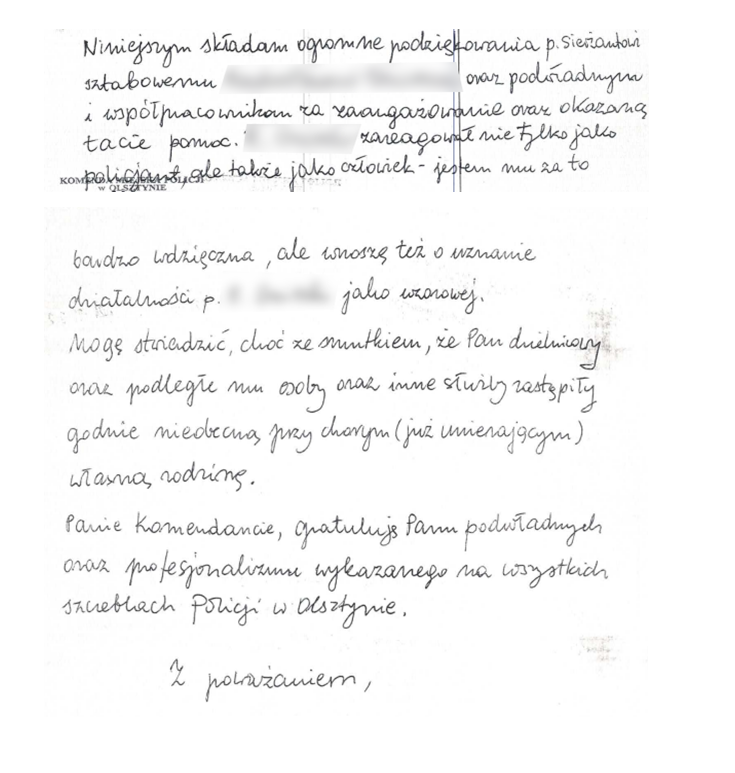 Niniejszym składam ogromne podziękowania p. Sierżantowi
sztabowemu oraz podwładnym
i współpracownikom za zaangażowanie oraz okazaną
tacie pomoc. zareagował nie tylko jako
policjant, ale także jako człowiek - jestem mu za to
KOMENDA MIEJSKA POLICJI
w OLSZTYNIE
bardzo wdzięczna, ale wnoszę też o uznanie
działalności p. jako wzorowej.
Mogę stwierdzić, choć ze smutkiem, że Pan dzielnicowy
oraz podległe mu osoby oraz inne służby zastąpiły
godnie nieobecną przy chorym (już umierającym)
własną rodzinę.
Panie Komendancie, gratuluję Panu podwładnych
oraz profesjonalizmu wykazanego na wszystkich
szczeblach Policji w Olsztynie.
Z poważaniem,